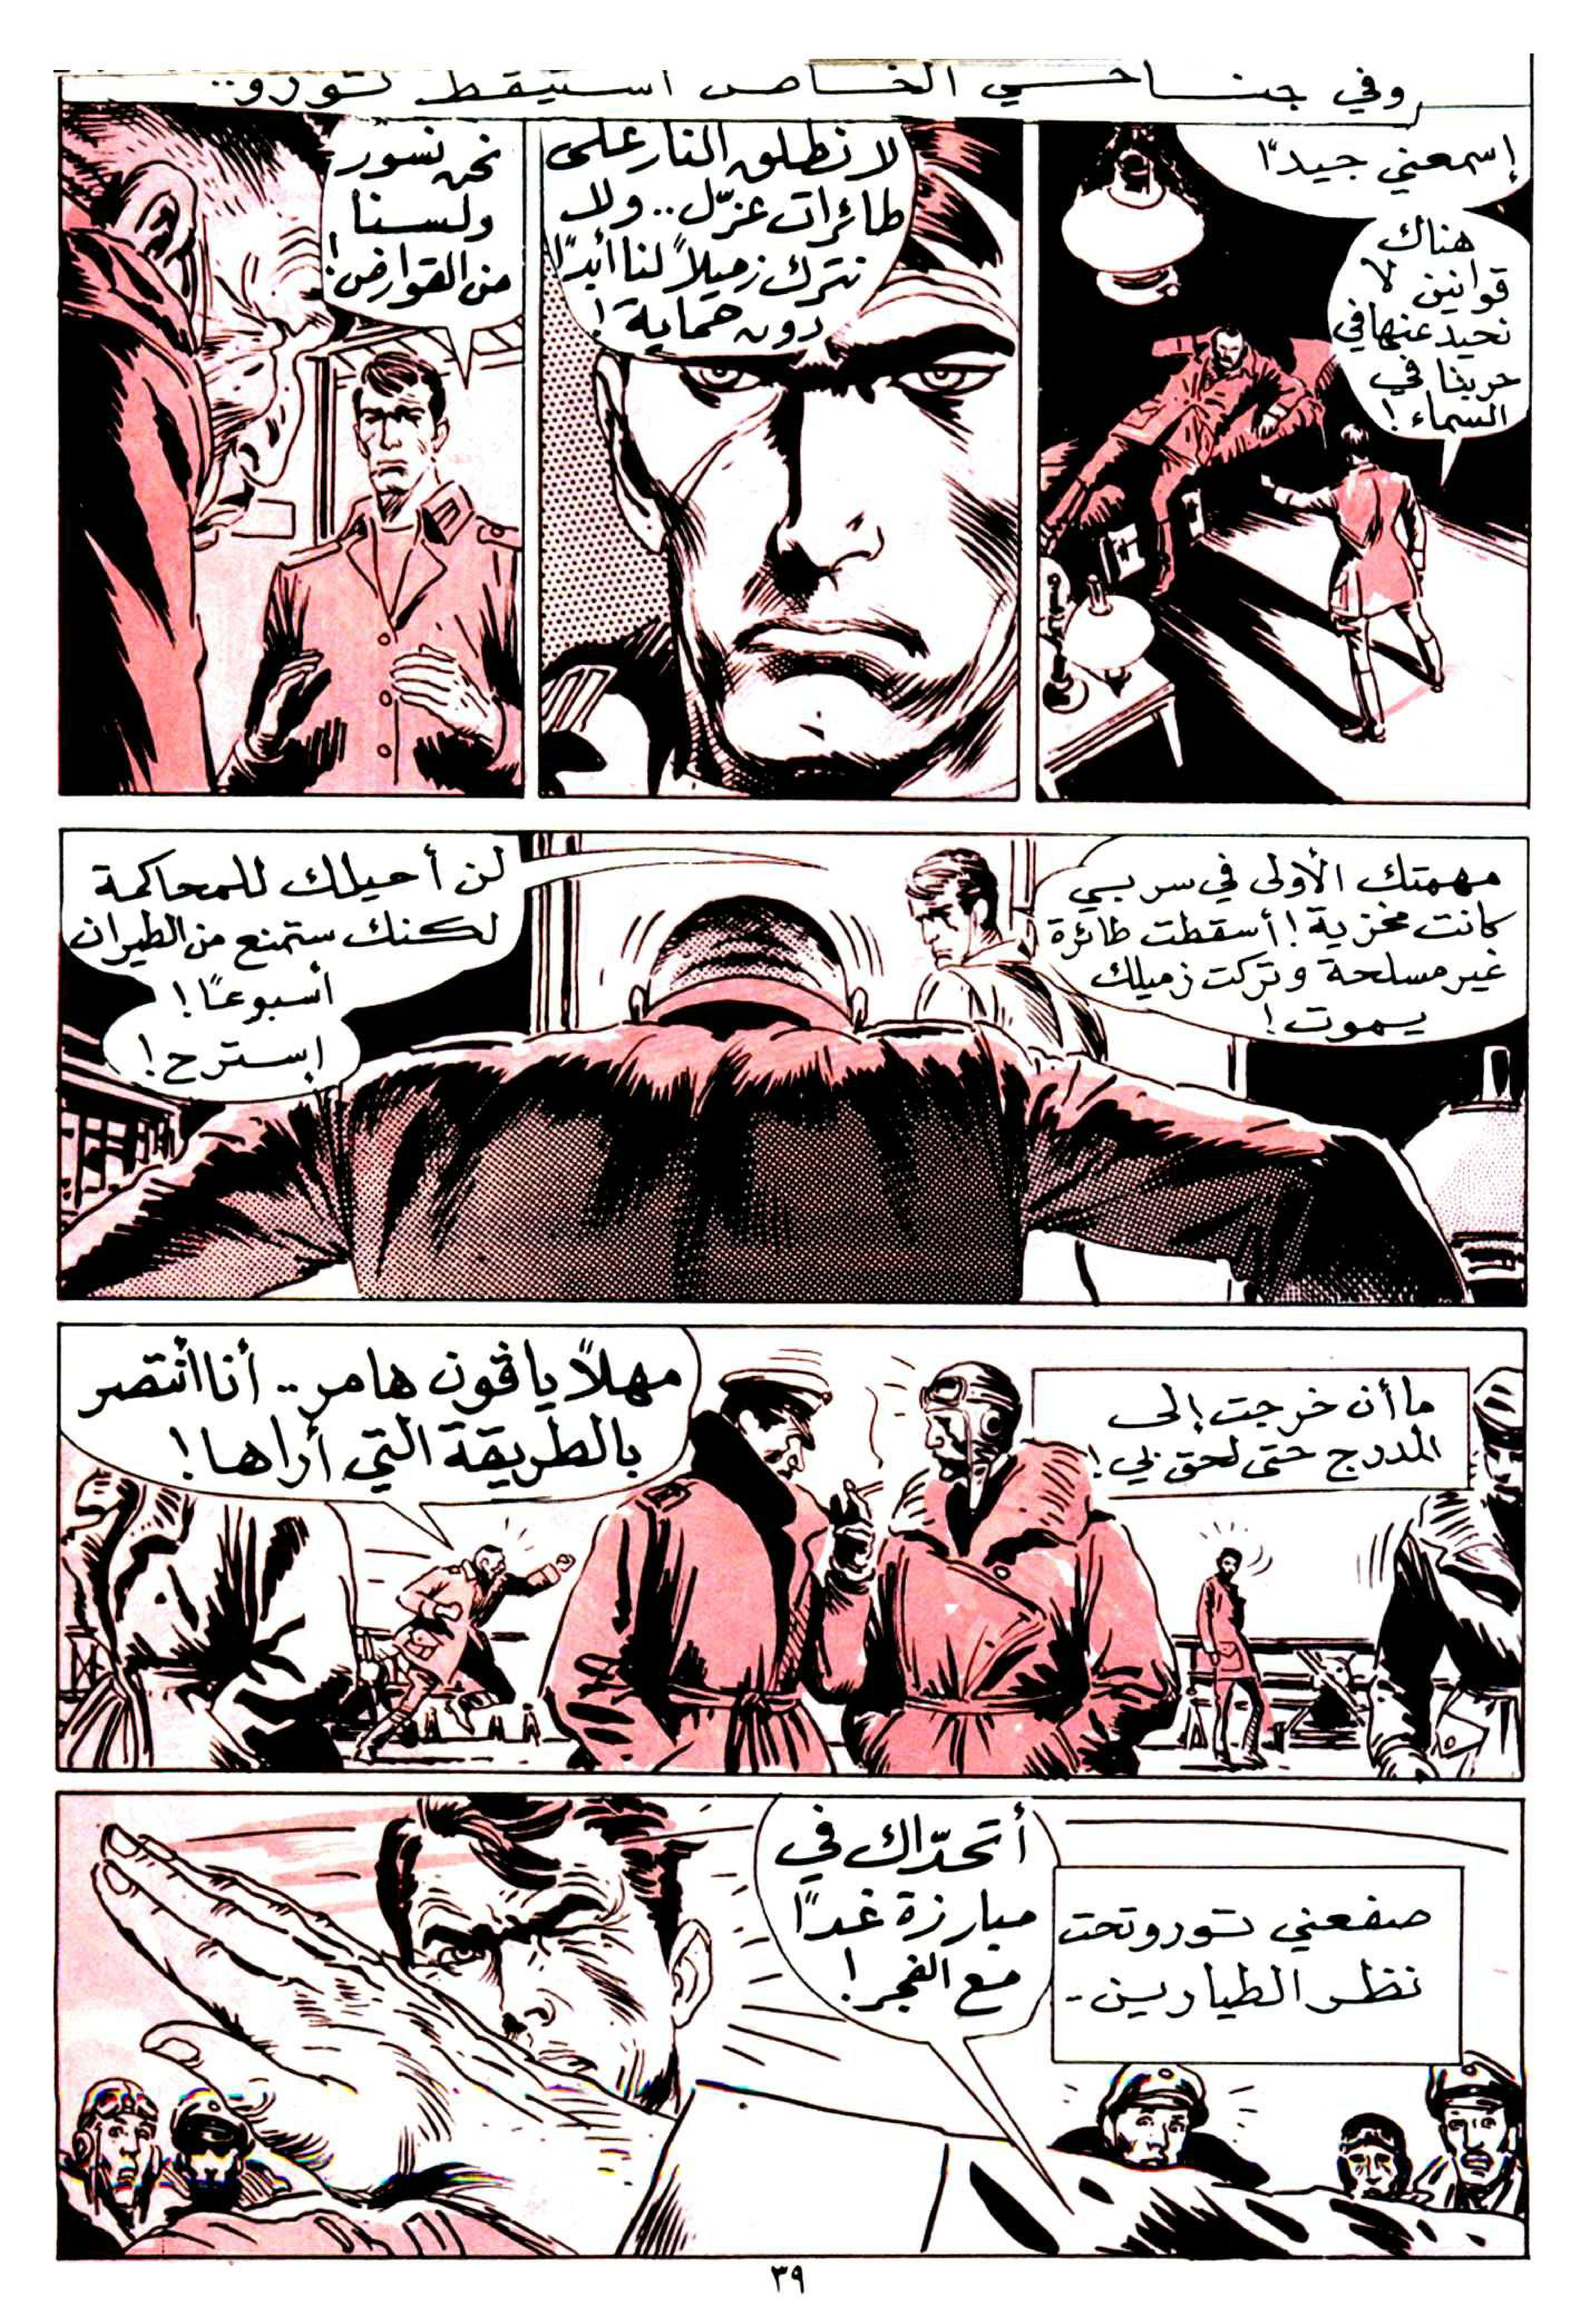 وفي جناحي الخاص استيقظ تورو..
إسمعني جيدًا
هناك
قوانين لا
نحيد عنها في
حربنا في
السماء!
لا نطلق النار على
طائرات عزّل.. ولا
نترك زميلاً لنا أبدًا
دون حماية!
نحن نسور
ولسنا
من القوارض!
مهمتك الأولى في سربي
كانت مخزية! أسقطت طائرة
غير مسلحة وتركت زميلك
يموت!
لن أحيلك للمحاكمة
لكنك ستمنع من الطيران
أسبوعًا!
إسترح!
ما أن خرجت إلى
المدرج حتى لحق بي!
مهلاً يا ڤون هامر.. أنا أنتصر
بالطريقة التي أراها!
صفعني تورو تحت
نظر الطيارين -
أتحدّاك في
مبارزة غدًا
مع الفجر!
٣٩